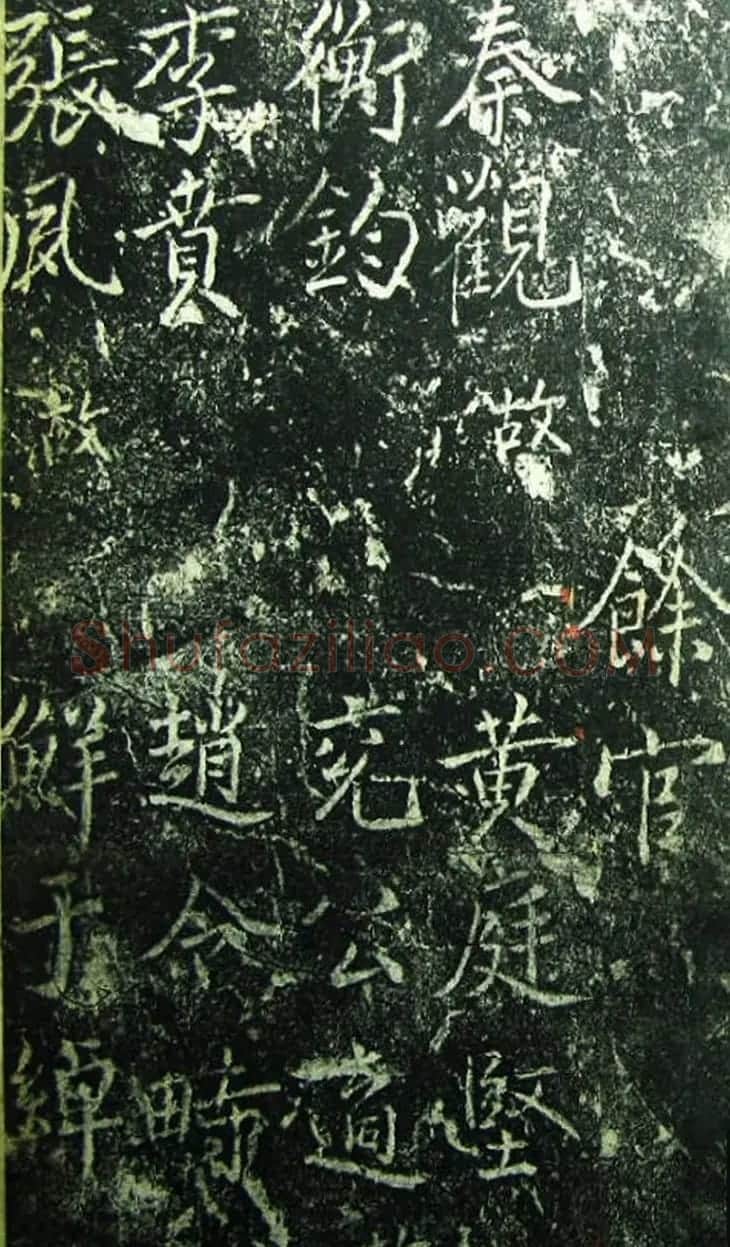 餘官
秦觀 故 黄庭堅
衡鈞 兖公適
李賁 趙令畤
張夙 故 鮮于綽
Shufaziliao.COM